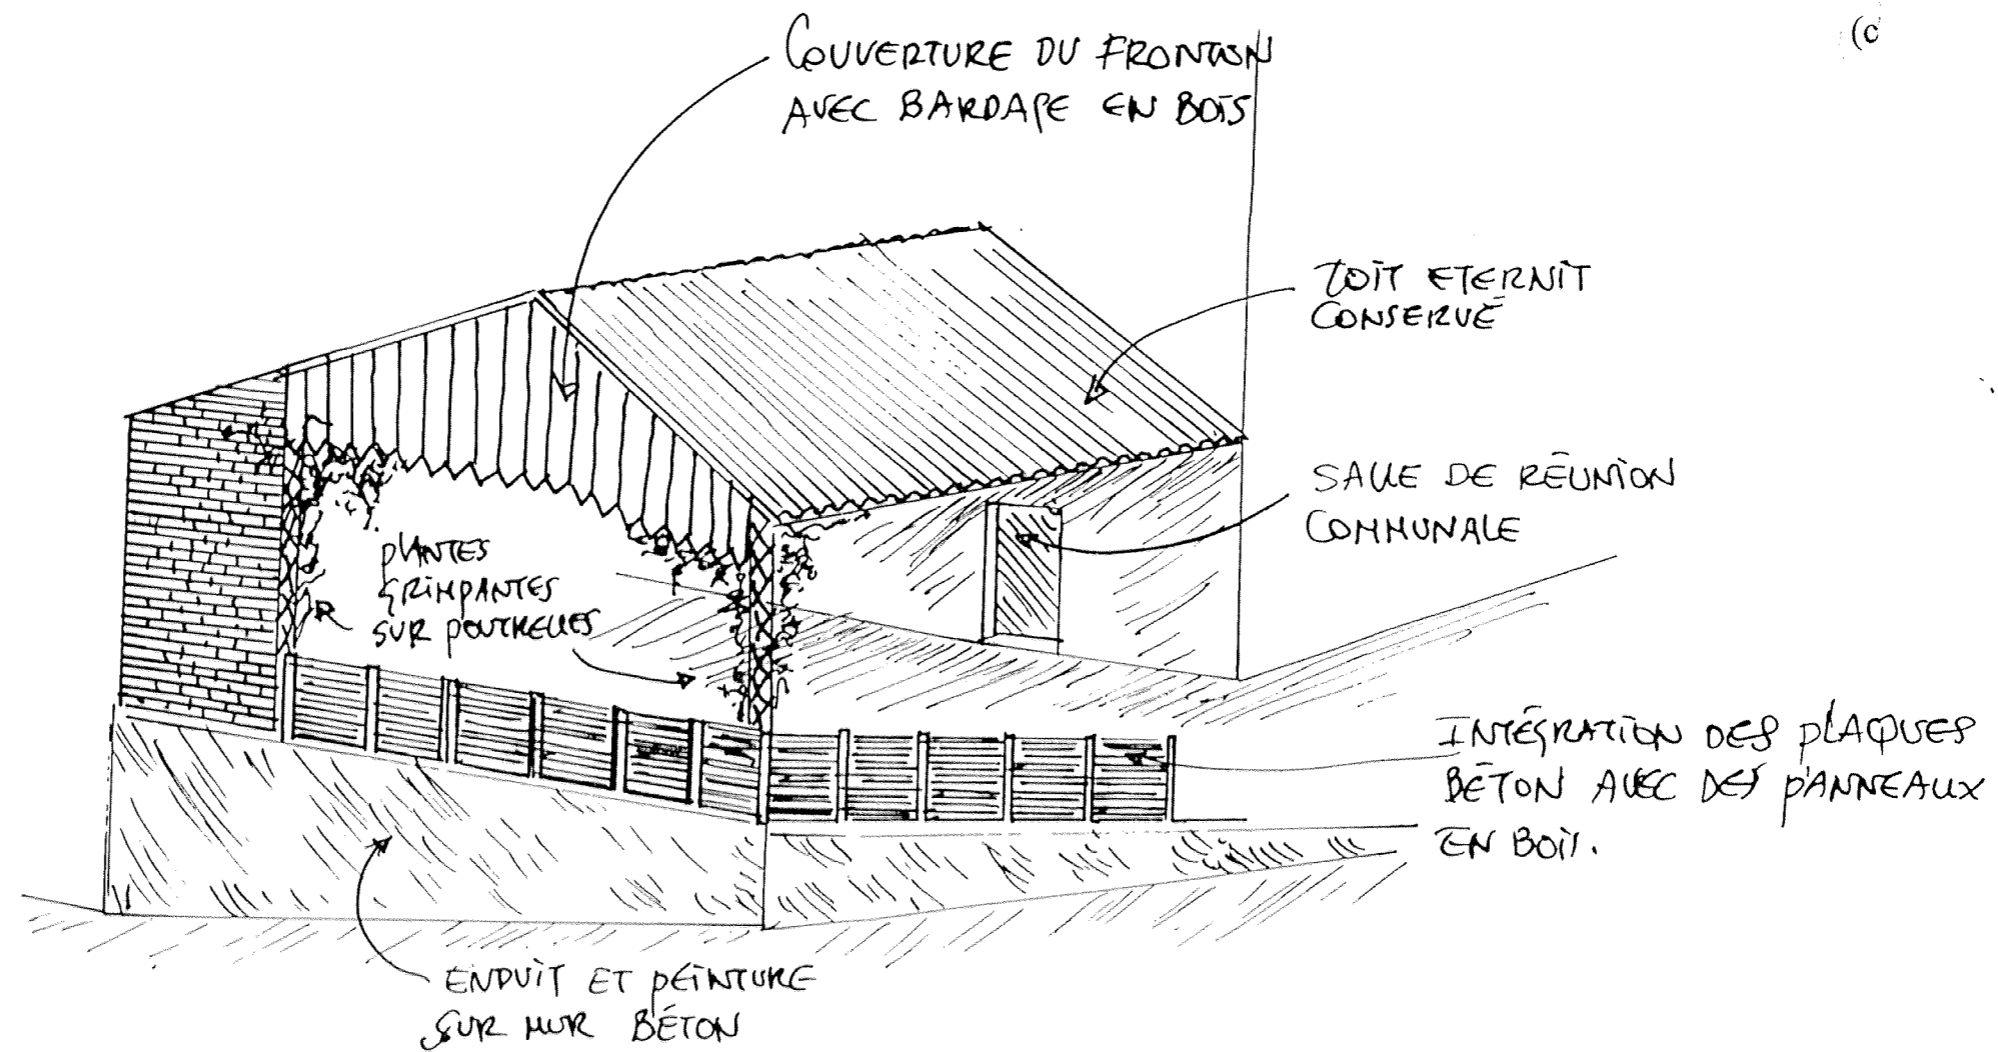 (c
COUVERTURE DU FRONTON
AVEC BARDAGE EN BOIS
TOIT ETERNIT
CONSERVÉ
SALLE DE RÉUNION
COMMUNALE
PLANTES
GRIMPANTES
SUR POUTRELLES
INTÉGRATION DES PLAQUES
BÉTON AVEC DES PANNEAUX
EN BOIS.
ENDUIT ET PEINTURE
SUR MUR BÉTON